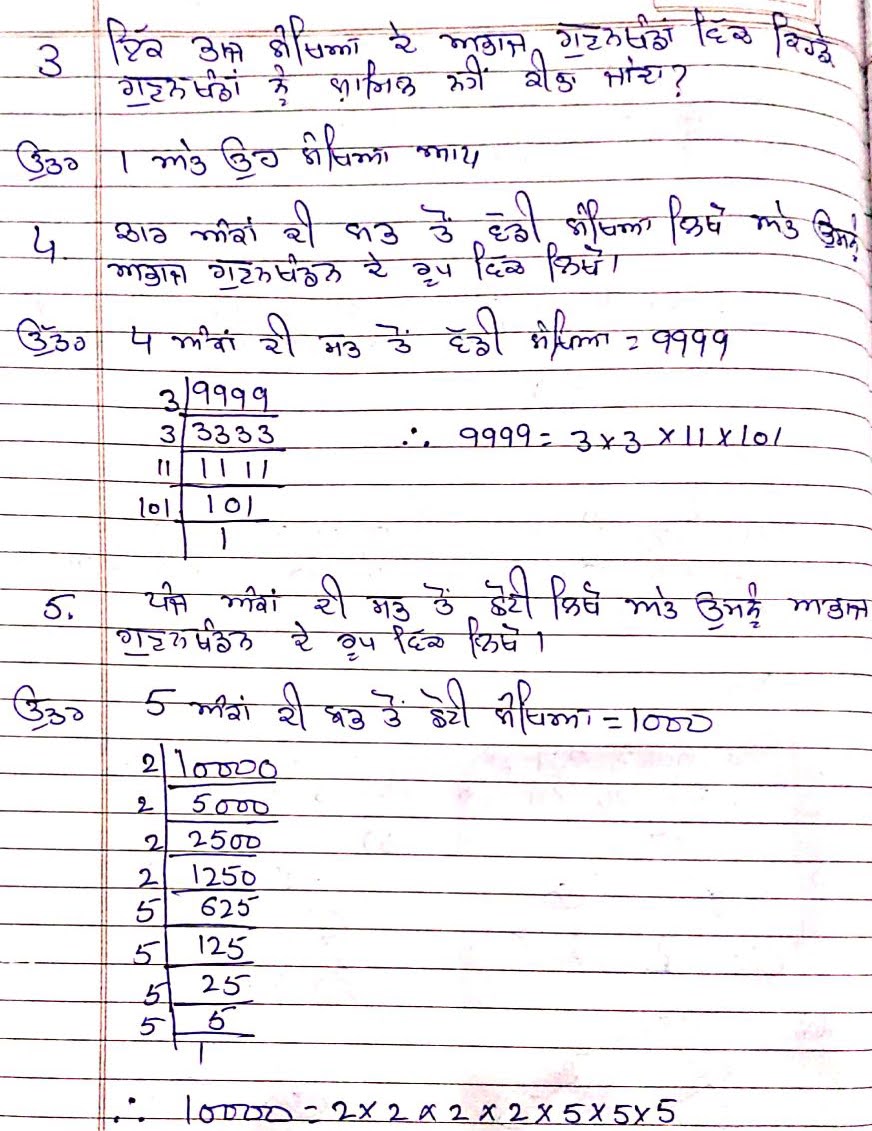 3 ਇੱਕ ਭਾਜ ਸੰਖਿਆ ਦੇ ਅਭਾਜ ਗੁਣਨਖੰਡਾਂ ਵਿੱਚ ਕਿਹੜੇ
ਗੁਣਨਖੰਡਾਂ ਨੂੰ ਸ਼ਾਮਿਲ ਨਹੀਂ ਕੀਤਾ ਜਾਂਦਾ?
ਉਤਰ 1 ਅਤੇ ਉਹ ਸੰਖਿਆ ਆਪ
4. ਚਾਰ ਅੰਕਾਂ ਦੀ ਸਭ ਤੋਂ ਵੱਡੀ ਸੰਖਿਆ ਲਿਖੋ ਅਤੇ ਉਸਨੂੰ
ਅਭਾਜ ਗੁਣਨਖੰਡਨ ਦੇ ਰੂਪ ਵਿੱਚ ਲਿਖੋ।
ਉੱਤਰ 4 ਅੰਕਾਂ ਦੀ ਸਭ ਤੋਂ ਵੱਡੀ ਸੰਖਿਆ = 9999
3 9999
3 3333 ∴ 9999 = 3 × 3 × 11 × 101
11 1111
101 101
1
5. ਪੰਜ ਅੰਕਾਂ ਦੀ ਸਭ ਤੋਂ ਛੋਟੀ ਲਿਖੋ ਅਤੇ ਉਸਨੂੰ ਅਭਾਜ
ਗੁਣਨਖੰਡਨ ਦੇ ਰੂਪ ਵਿੱਚ ਲਿਖੋ।
ਉਤਰ 5 ਅੰਕਾਂ ਦੀ ਸਭ ਤੋਂ ਛੋਟੀ ਸੰਖਿਆ = 1000
2 10000
2 5000
2 2500
2 1250
5 625
5 125
5 25
5 5
1
∴ 10000 = 2 × 2 × 2 × 2 × 5 × 5 × 5